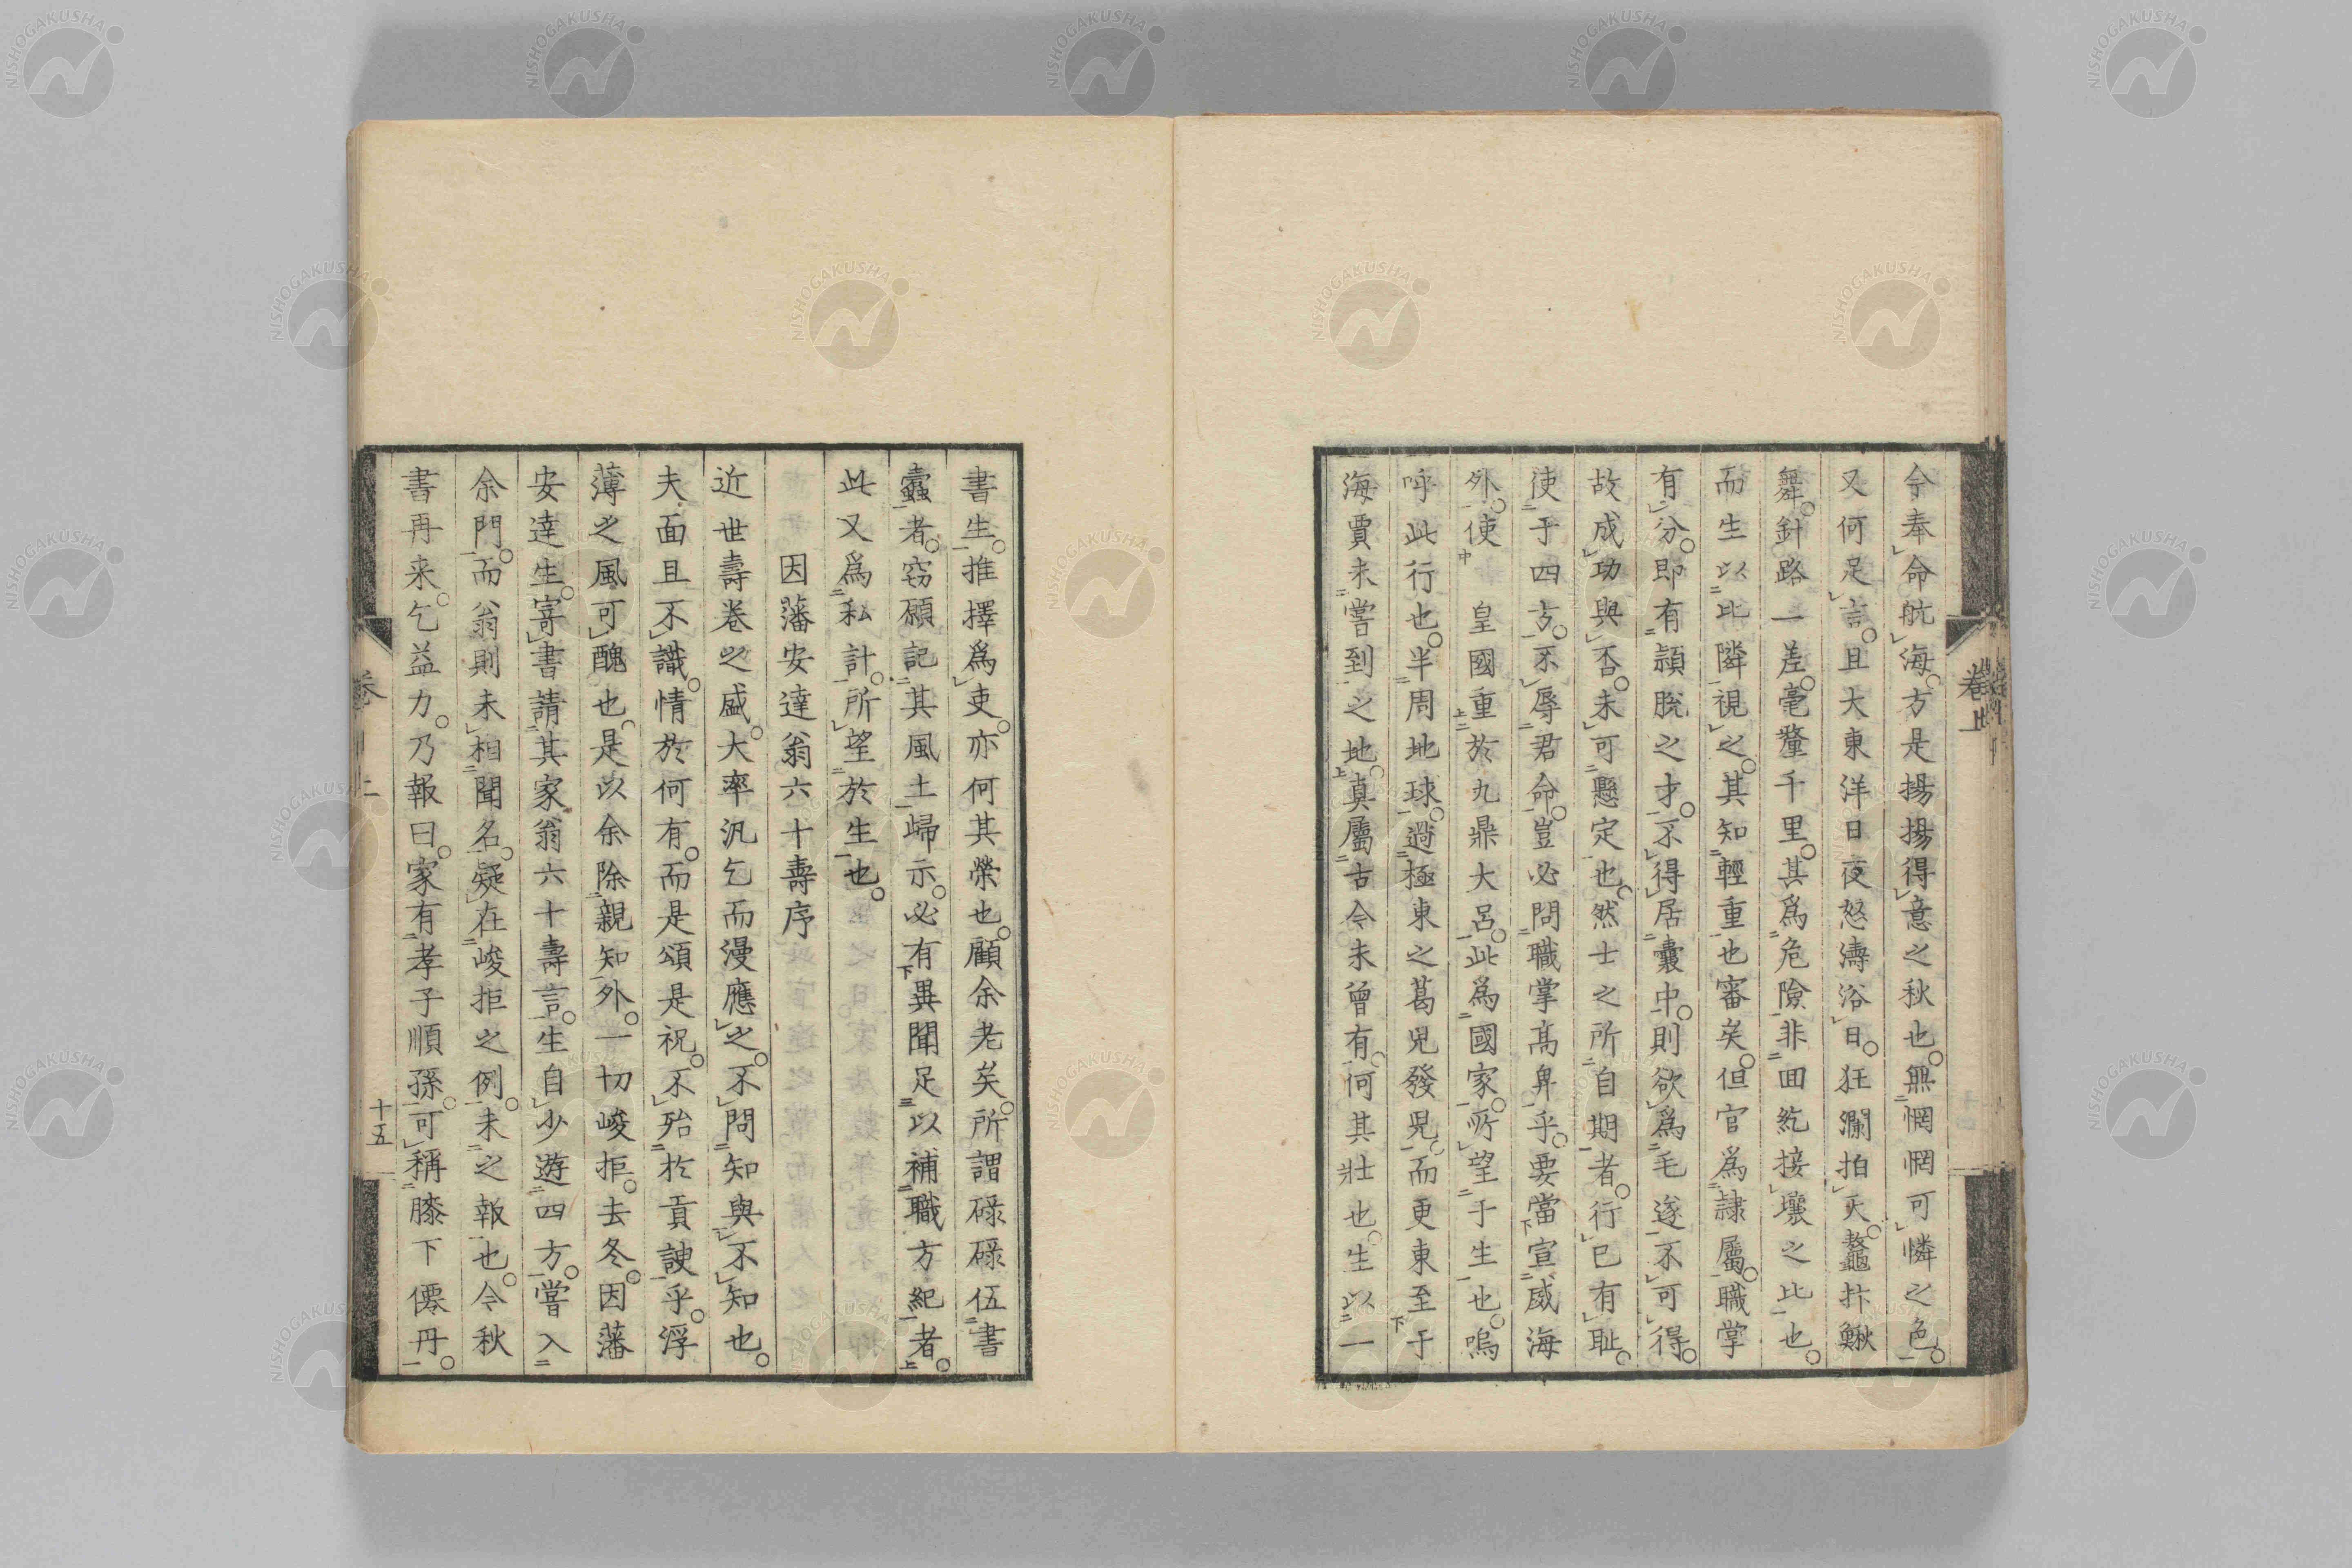 今奉命航海。方是揚揚得意之秋也。無惘惘可憐之色。
又何足言。且大東洋日夜怒濤浴日。狂瀾拍天。鼇抃鰍
舞。針路一差。毫釐千里。其為危險。非囬紇接壤之比也。
而生以比隣視之。其知輕重也審矣。但官為隷屬。職掌
有分。即有頴脫之才。不得居囊中。則欲為毛遂不可得。
故成功與否。未可懸定也。然士之所自期者。行己有耻。
使于四方。不辱君命。豈必問職掌高卑乎。要當宣威海
外。使　皇國重於九鼎大呂。此為國家。所望于生也。嗚
呼此行也。半周地球。過極東之葛児發児。而更東至于
海賈未嘗到之地。真屬古今未曾有。何其壮也。生以一
書生。推擇為吏。亦何其榮也。顧余老矣。所謂碌碌伍書
蠹者。窃願記其風土歸示。必有異聞足以補職方紀者。
此又為私計。所望於生也。
因藩安達翁六十壽序
近世壽卷之盛。大率汎乞而漫應之。不問知與不知也。
夫面且不識。情於何有。而是頌是祝。不殆於貢諛乎。浮
薄之風可醜也。是以余除親知外。一切峻拒。去冬。因藩
安達生。寄書請其家翁六十壽言。生自少遊四方。嘗入
余門。而翁則未相聞名。疑在峻拒之例。未之報也。今秋
書再来。乞益力。乃報曰。家有孝子順孫。可稱膝下僊丹。
卷上
十五